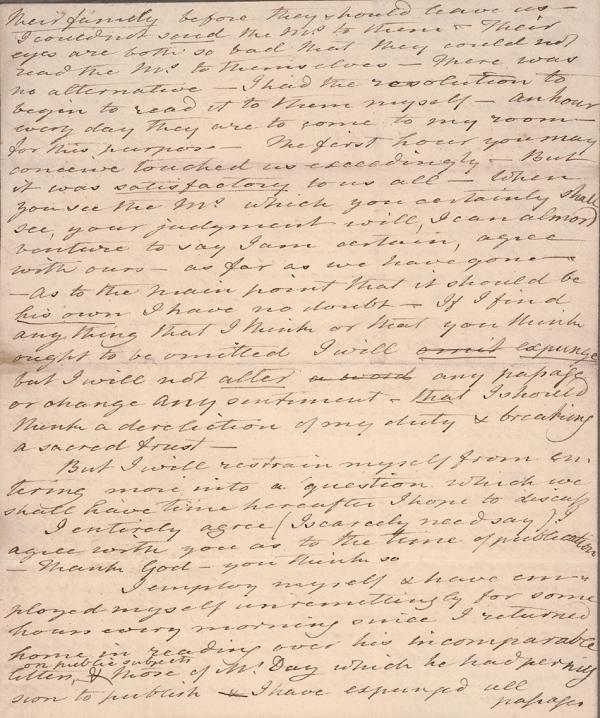 their family before they should leave us —
I could not send the Ms to them — Their
eyes are both so bad that they could not
read the Ms. to themselves — There was
no alternative — I had the resolution to
begin to read it to them myself — an hour
every day they are to come to my room —
for this purpose — The first hour you may
conceive touched us exceedingly — But
it was satisfactory to us all — When
you see the Ms which you certainly shall
see, your judgment will, I can almost
venture to say I am certain, agree
with ours — as far as we have gone —
— As to the main point that it should be
his own I have no doubt — If I find
any thing that I think or that you think
ought to be omitted I will omit expunge
but I will not alter a word any passage
or change any sentiment — that I should
think a dereliction of my duty & breaking
a sacred trust —
But I will restrain myself from en-
tering more into a question which we
shall have time hereafter I hope to discuss
I entirely agree (I scarcely need say) I
agree with you as to the time of publication
— Thank God — you think so
I employ myself & have em-
ployed myself unremittingly for some
hours every morning since I returned
home in reading over his incomparable
on public subjects
letters, & those of Mr Day which he had permis
sion to publish — & I have expunged all
passages